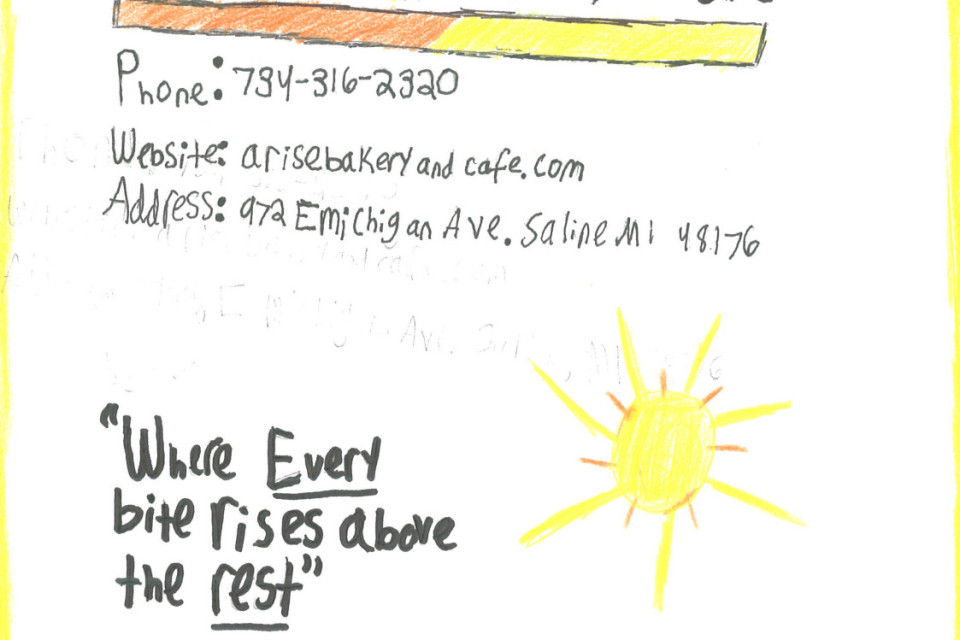 Phone: 734-316-2320
Website: arisebakeryandcafe.com
Address: 972 E Michigan Ave. Saline MI 48176
"Where Every
bite rises above
the rest"